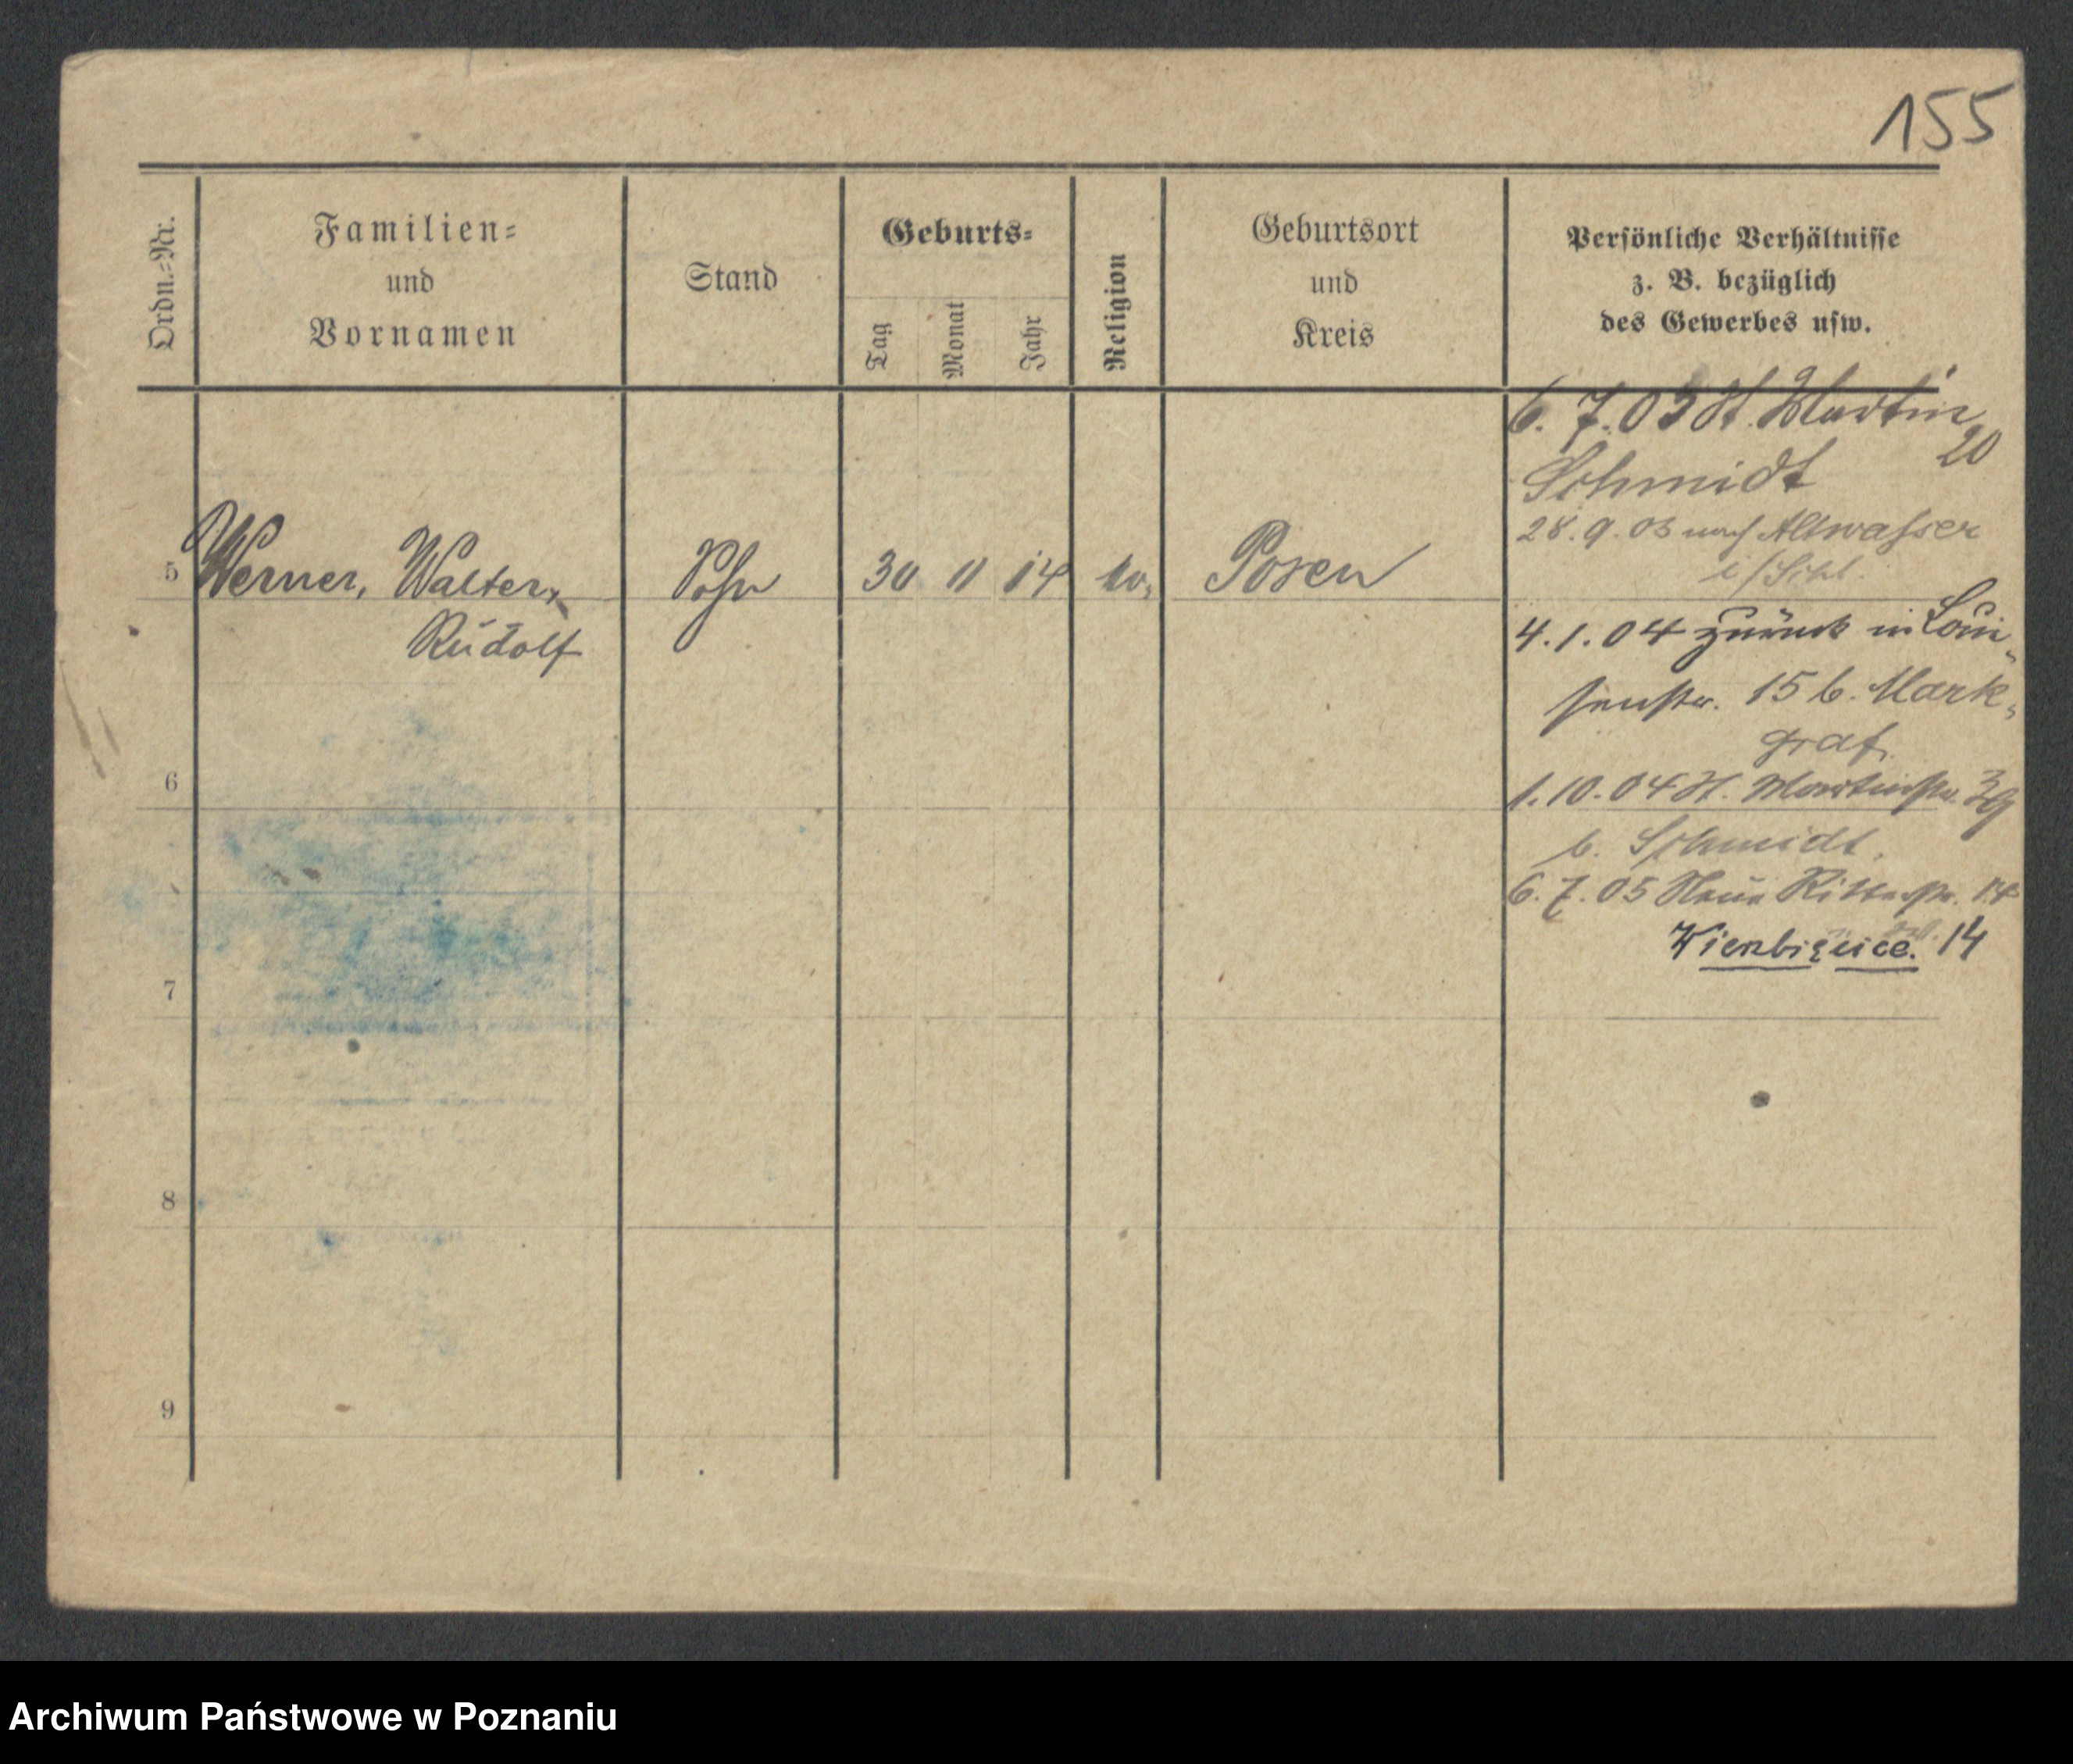 155
Ordn.=Nr.
Familien=
und
Vornamen
Stand
Geburts=
Tag
Monat
Jahr
Religion
Geburtsort
und
Kreis
Persönliche Verhältnisse
z. B. bezüglich
des Gewerbes usw.
6. 7. 03 St. Martin
20
Schmidt
28. 9. 03 nach Altwasser
i/Schl.
5 Werner, Walter, Sohn 30 11 14 Posen
Rudolf
4. 1. 04 zurück in Loui-
senstr. 15 b. Mark-
graf.
6
1. 10. 04 St. Martinstr.
b. Schmidt.
6. 7. 05 Neue Ritterstr. 14
Wierbięcice. 14
7
8
9
Archiwum Państwowe w Poznaniu